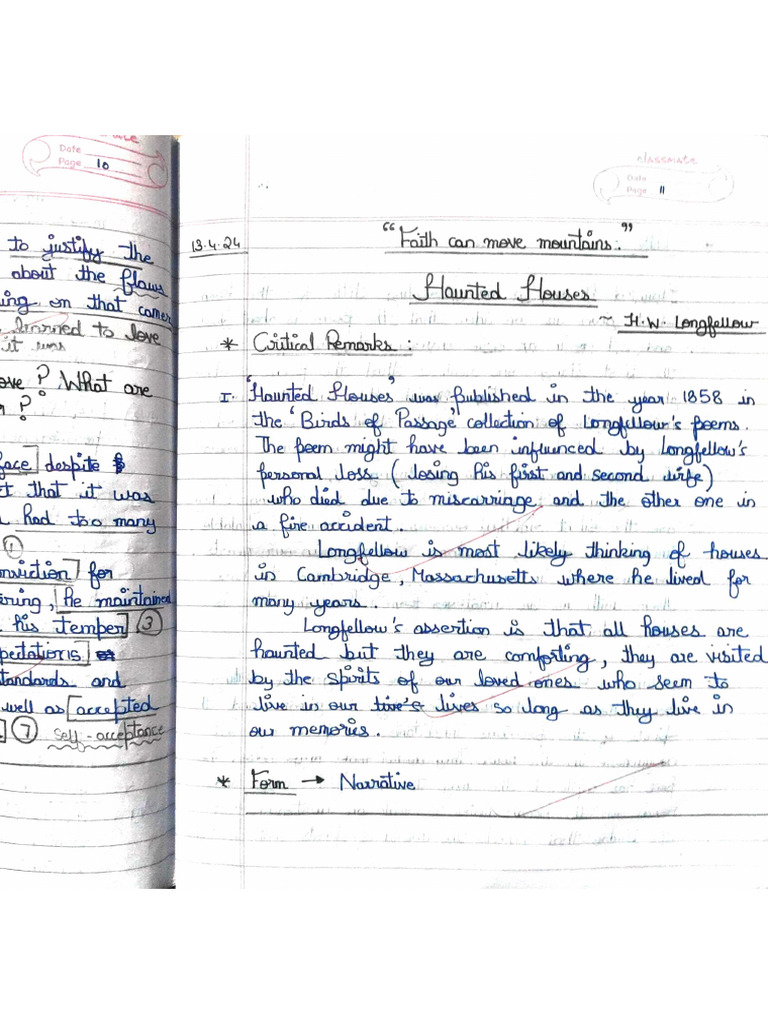 Date
Page 10
to justify the
about the flaws
ing on that camer
learned to love
it was
ove? What are
?
face despite
t that it was
had too many
1
onviction for
ering, he maintained
his temper 3
pectations
standards and
well as accepted
7 self-acceptance
classmate
Date
Page 11
13.4.24
"Faith can move mountains."
Haunted Houses
~ H.W. Longfellow
* Critical Remarks :
I. 'Haunted Houses' was published in the year 1858 in
the 'Birds of Passage' collection of Longfellow's poems.
The poem might have been influenced by Longfellow's
personal loss (losing his first and second wife)
who died due to miscarriage and the other one in
a fire accident.
Longfellow is most likely thinking of houses
in Cambridge, Massachusetts where he lived for
many years.
Longfellow's assertion is that all houses are
haunted but they are comforting, they are visited
by the spirits of our loved ones who seem to
live in our live's lives so long as they live in
our memories.
* Form → Narrative